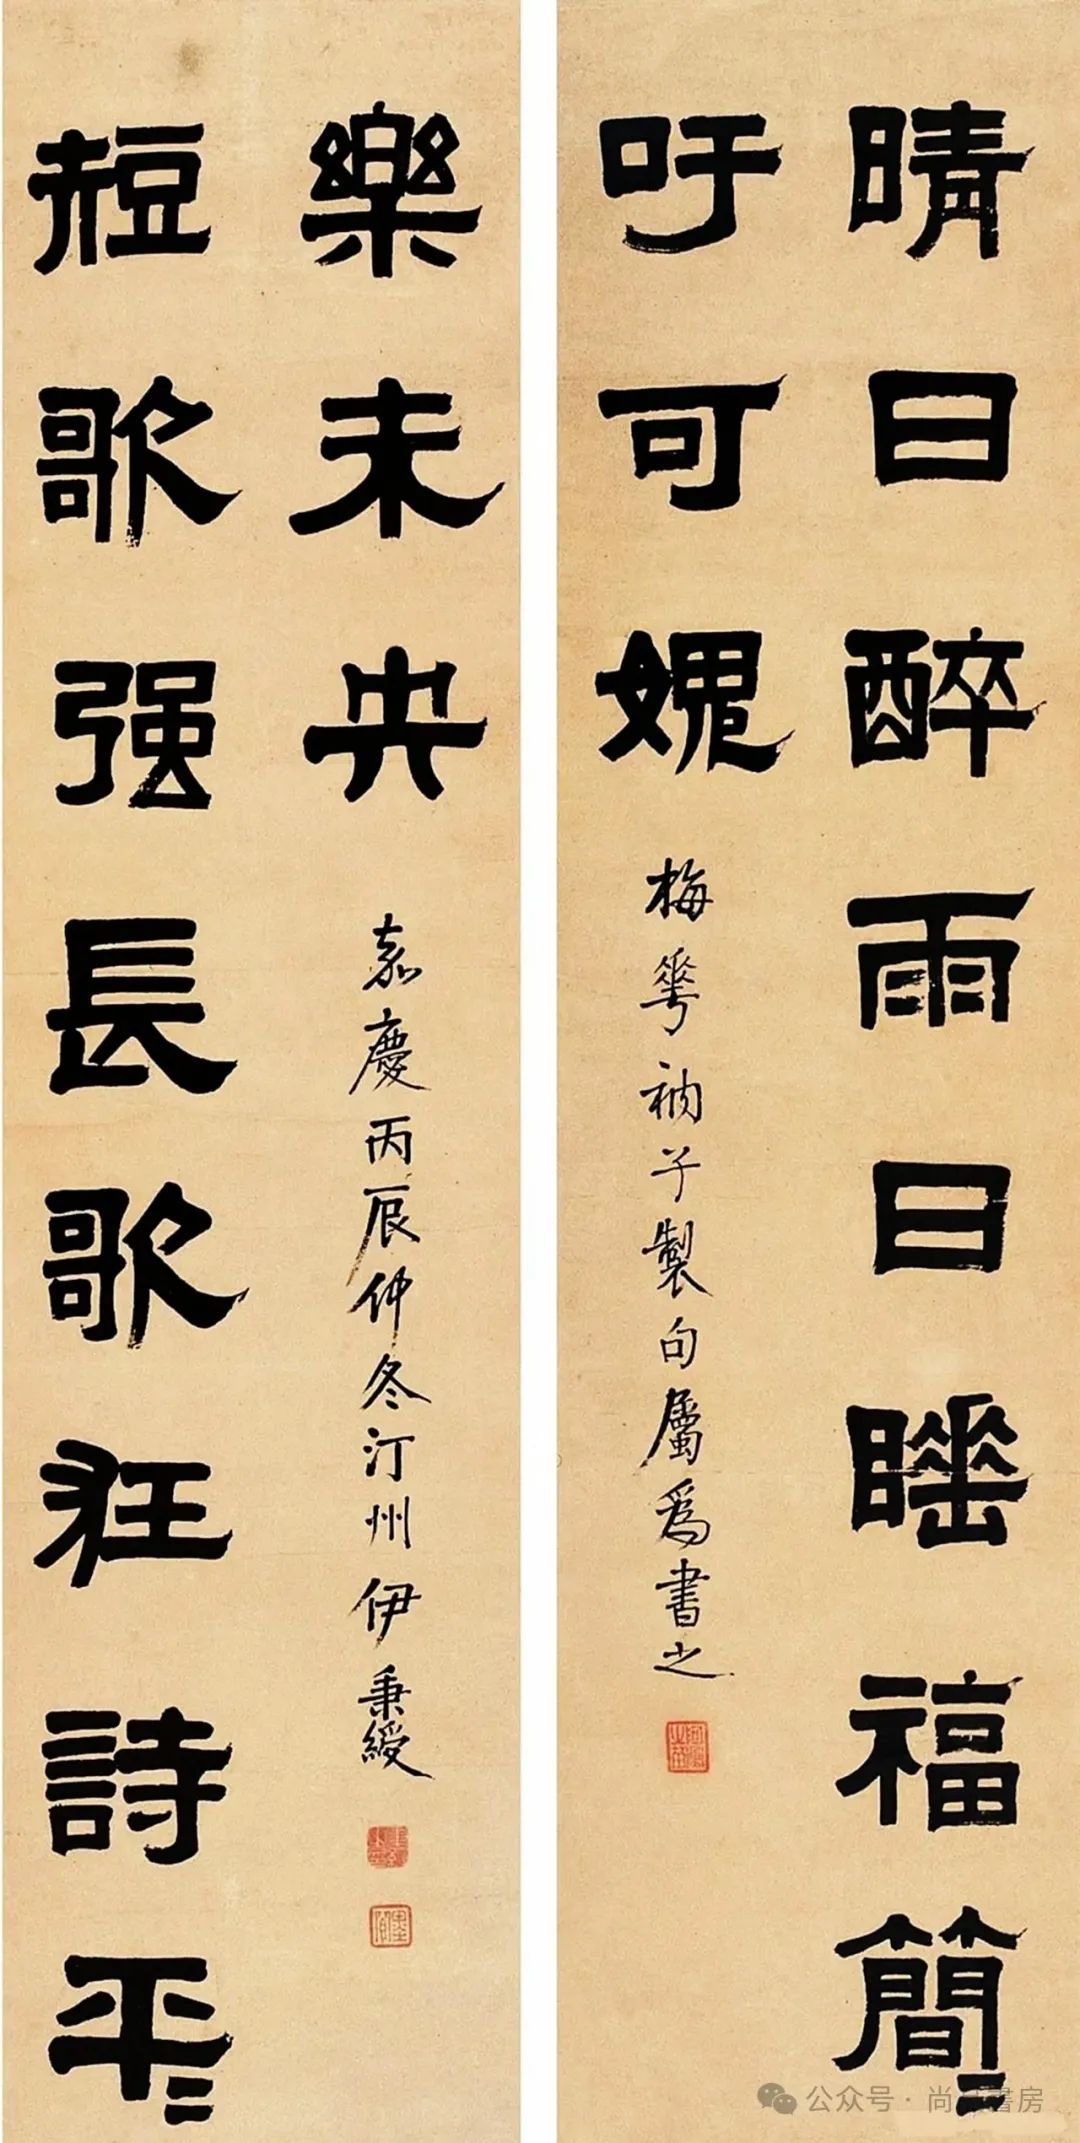 晴日醉雨日睡福簡〻
吁可媿
梅華衲子製句屬爲書之
短歌强長歌狂詩平〻
樂未央
嘉慶丙辰仲冬汀州伊秉綬
公众号 · 尚書房